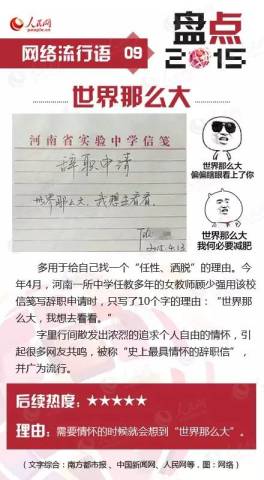 人民网
people.cn
盘点
网络流行语 09
2015
世界那么大
河南省实验中学信笺
辞职申请
世界那么大，我想去看看。
2015.4.13
世界那么大
偏偏瞎眼看上了你
世界那么大
我何必要减肥
多用于给自己找一个“任性、洒脱”的理由。今
年4月，河南一所中学任教多年的女教师顾少强用该校
信笺写辞职申请时，只写了10个字的理由：“世界那
么大，我想去看看。”
字里行间散发出浓烈的追求个人自由的情怀，引
起很多网友共鸣，被称“史上最具情怀的辞职信”，
并广为流行。
后续热度：★★★★★
理由：需要情怀的时候就会想到“世界那么大”。
（文字综合：南方都市报、中国新闻网、人民网等，图：网络）